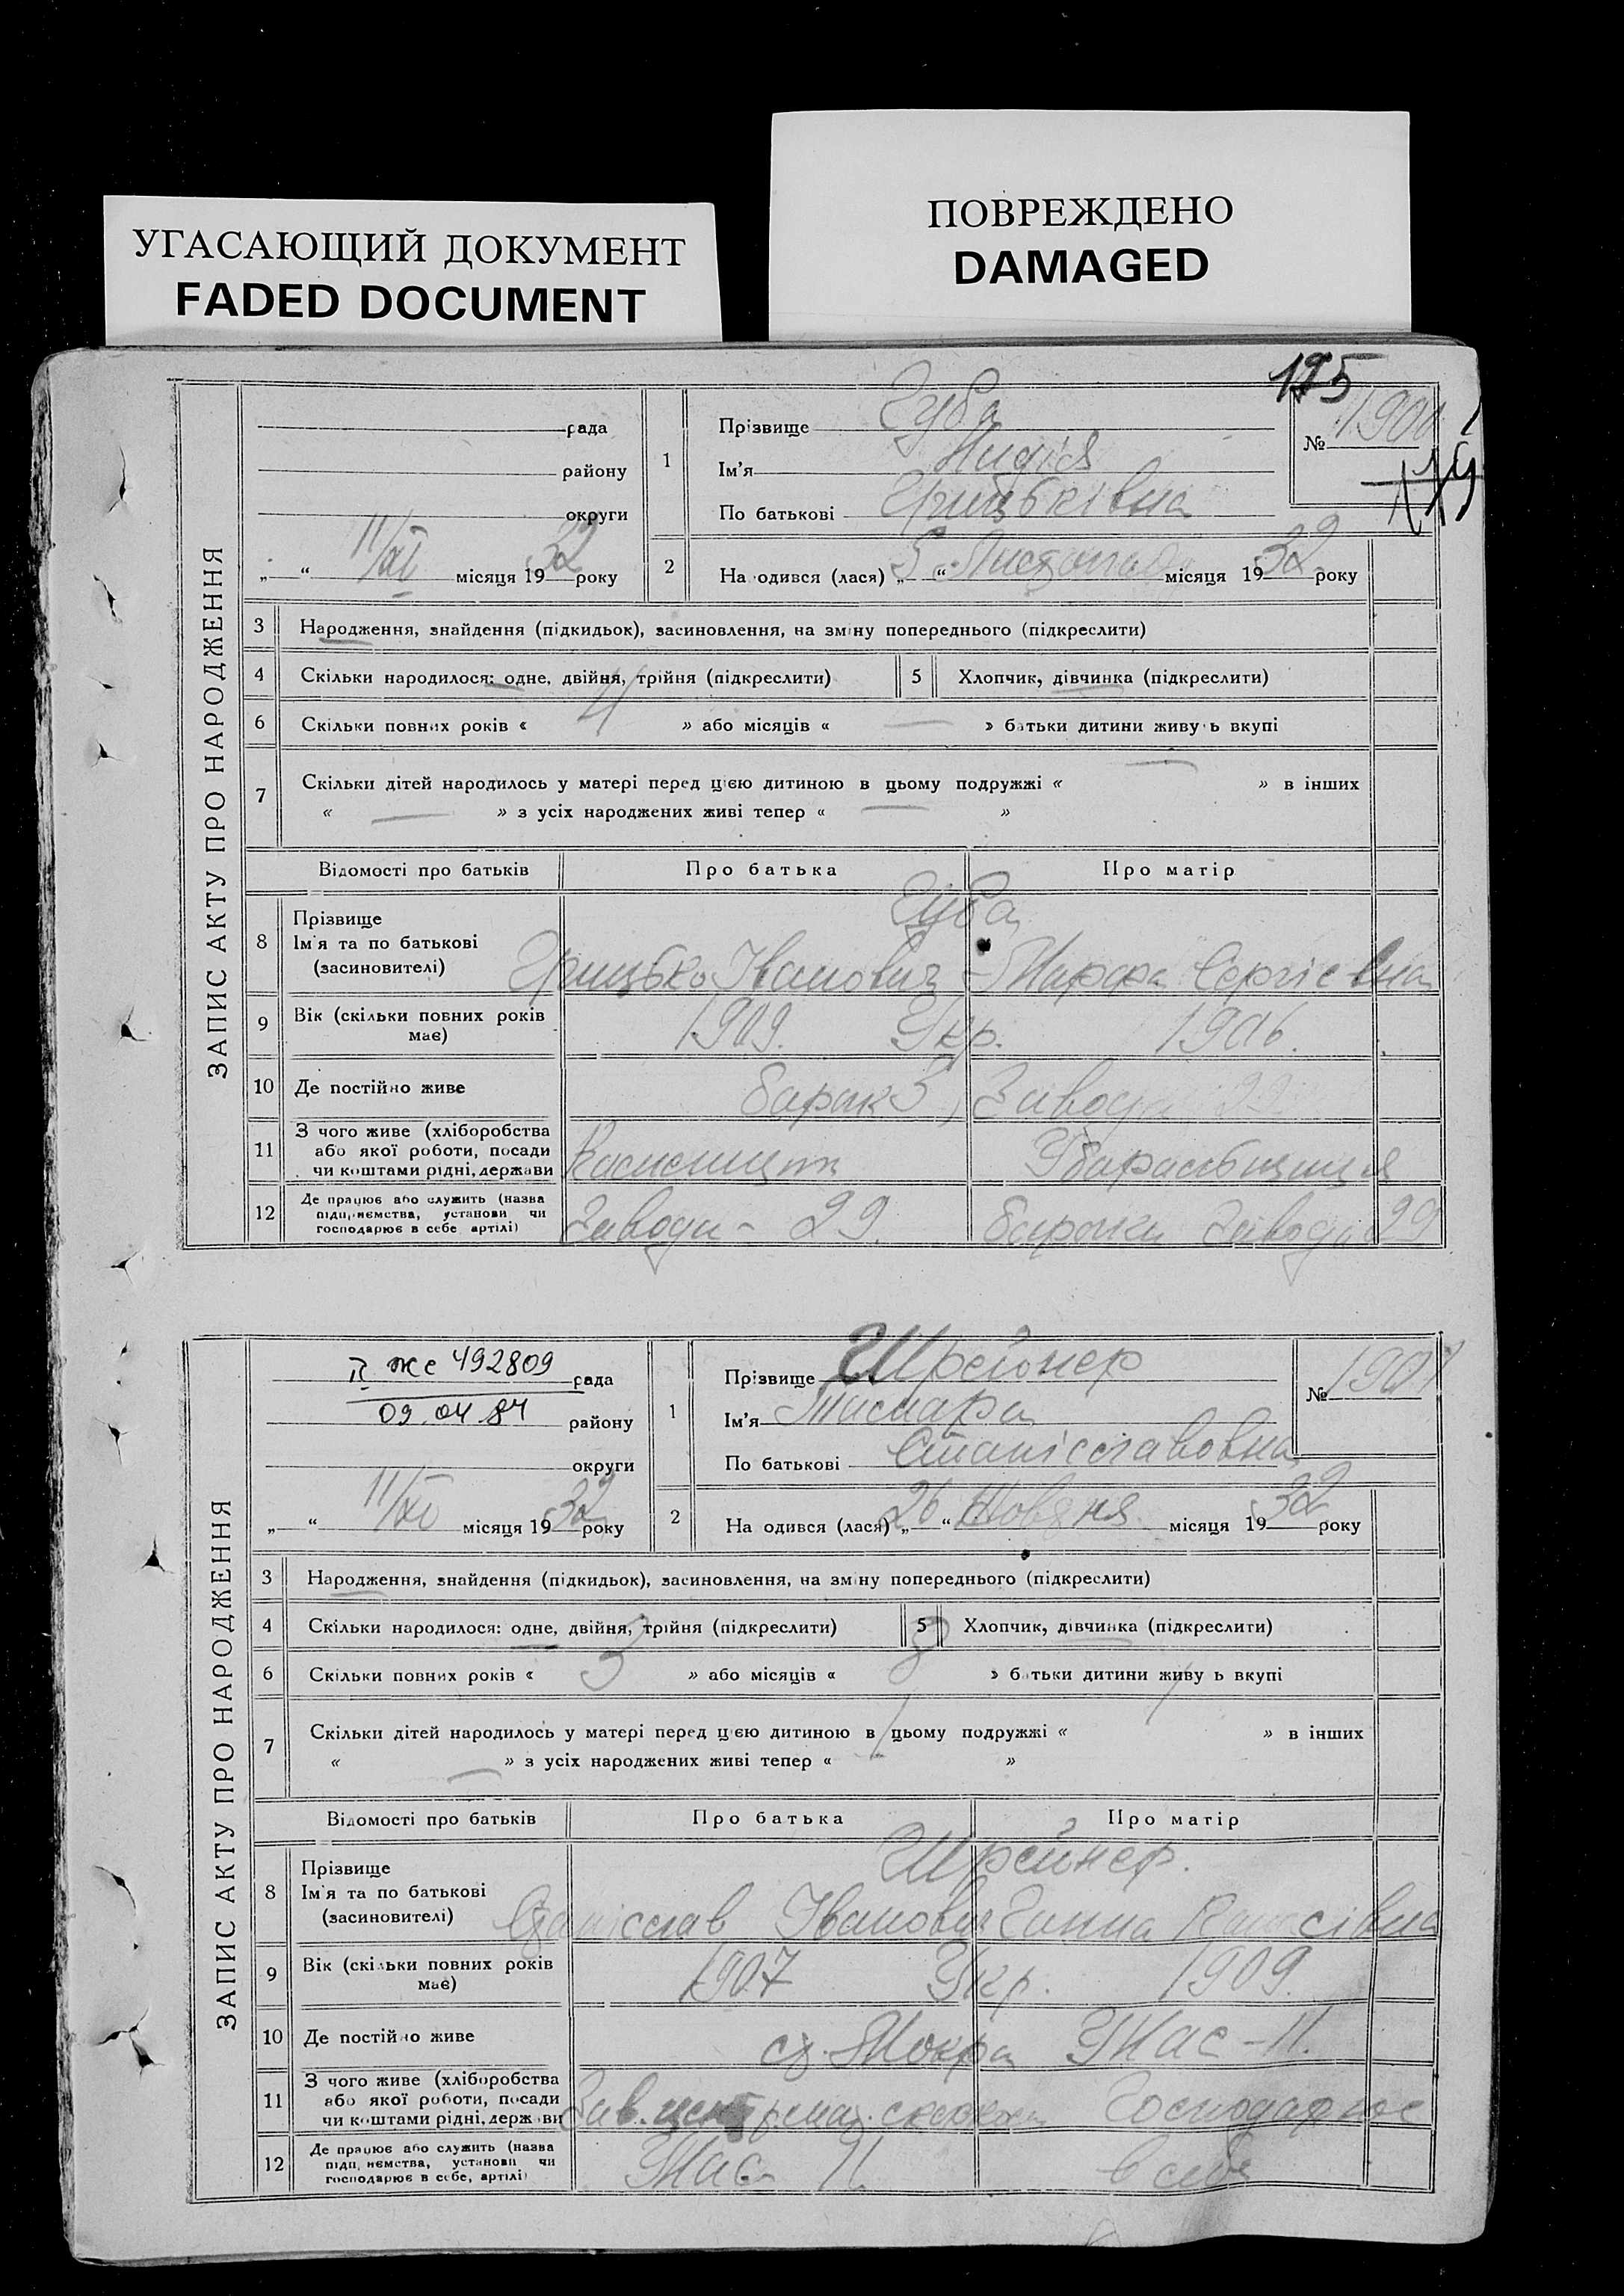 УГАСАЮЩИЙ ДОКУМЕНТ
FADED DOCUMENT
ПОВРЕЖДЕНО
DAMAGED
195
179
ЗАПИС АКТУ ПРО НАРОДЖЕННЯ
рада
району
округи
„ “ 11/XI місяця 1932 року
1 Прізвище Губа
Ім'я Лидія
По батькові Грицьківна
№ 1900
2 На одився (лася) „5“ Листопада місяця 1932 року
3 Народження, знайдення (підкидьок), засиновлення, на зміну попереднього (підкреслити)
4 Скільки народилося: одне, двійня, трійня (підкреслити) 5 Хлопчик, дівчинка (підкреслити)
6 Скільки повних років « 4 » або місяців « — » батьки дитини живуть вкупі
7 Скільки дітей народилось у матері перед цією дитиною в цьому подружжі « — » в інших
« — » з усіх народжених живі тепер « — »
Відомості про батьків Про батька Про матір
8 Прізвище Губа
Ім'я та по батькові
(засновителі) Грицько Іванович Марфа Сергієвна
9 Вік (скільки повних років має) 1909. Укр. 1906.
10 Де постійно живе барак 5, Завода 29
11 З чого живе (хліборобства
або якої роботи, посади
чи коштами рідні, держави
12 Де працює або служить (назва
підприємства, установи чи
господарює в себе артілі) Завода - 29. бараки Завода 29
ЗАПИС АКТУ ПРО НАРОДЖЕННЯ
II же 492809 рада
09.04.84 району
округи
„ “ 11/XI місяця 1932 року
1 Прізвище Шрейнер
Ім'я Тамара
По батькові Станіславовна
№ 1901
2 На одився (лася) „26“ місяця 1932 року
3 Народження, знайдення (підкидьок), засиновлення, на зміну попереднього (підкреслити)
4 Скільки народилося: одне, двійня, трійня (підкреслити) 5 Хлопчик, дівчинка (підкреслити)
6 Скільки повних років « 3 » або місяців « 8 » батьки дитини живу ь вкупі
7 Скільки дітей народилось у матері перед цією дитиною в цьому подружжі « 1 » в інших
« — » з усіх народжених живі тепер « 1 »
Відомості про батьків Про батька Про матір
8 Прізвище Шрейнер.
Ім'я та по батькові
(засиновителі) Станіслав Іванович Ганна
9 Вік (скільки повних років має) 1907 Укр. 1909.
10 Де постійно живе ст. Мокра
11 З чого живе (хліборобства
або якої роботи, посади
чи коштами рідні, держави Господарює
12 Де працює або служить (назва
підп, иємства, установи чи
господарює в себе, артілі) в себе